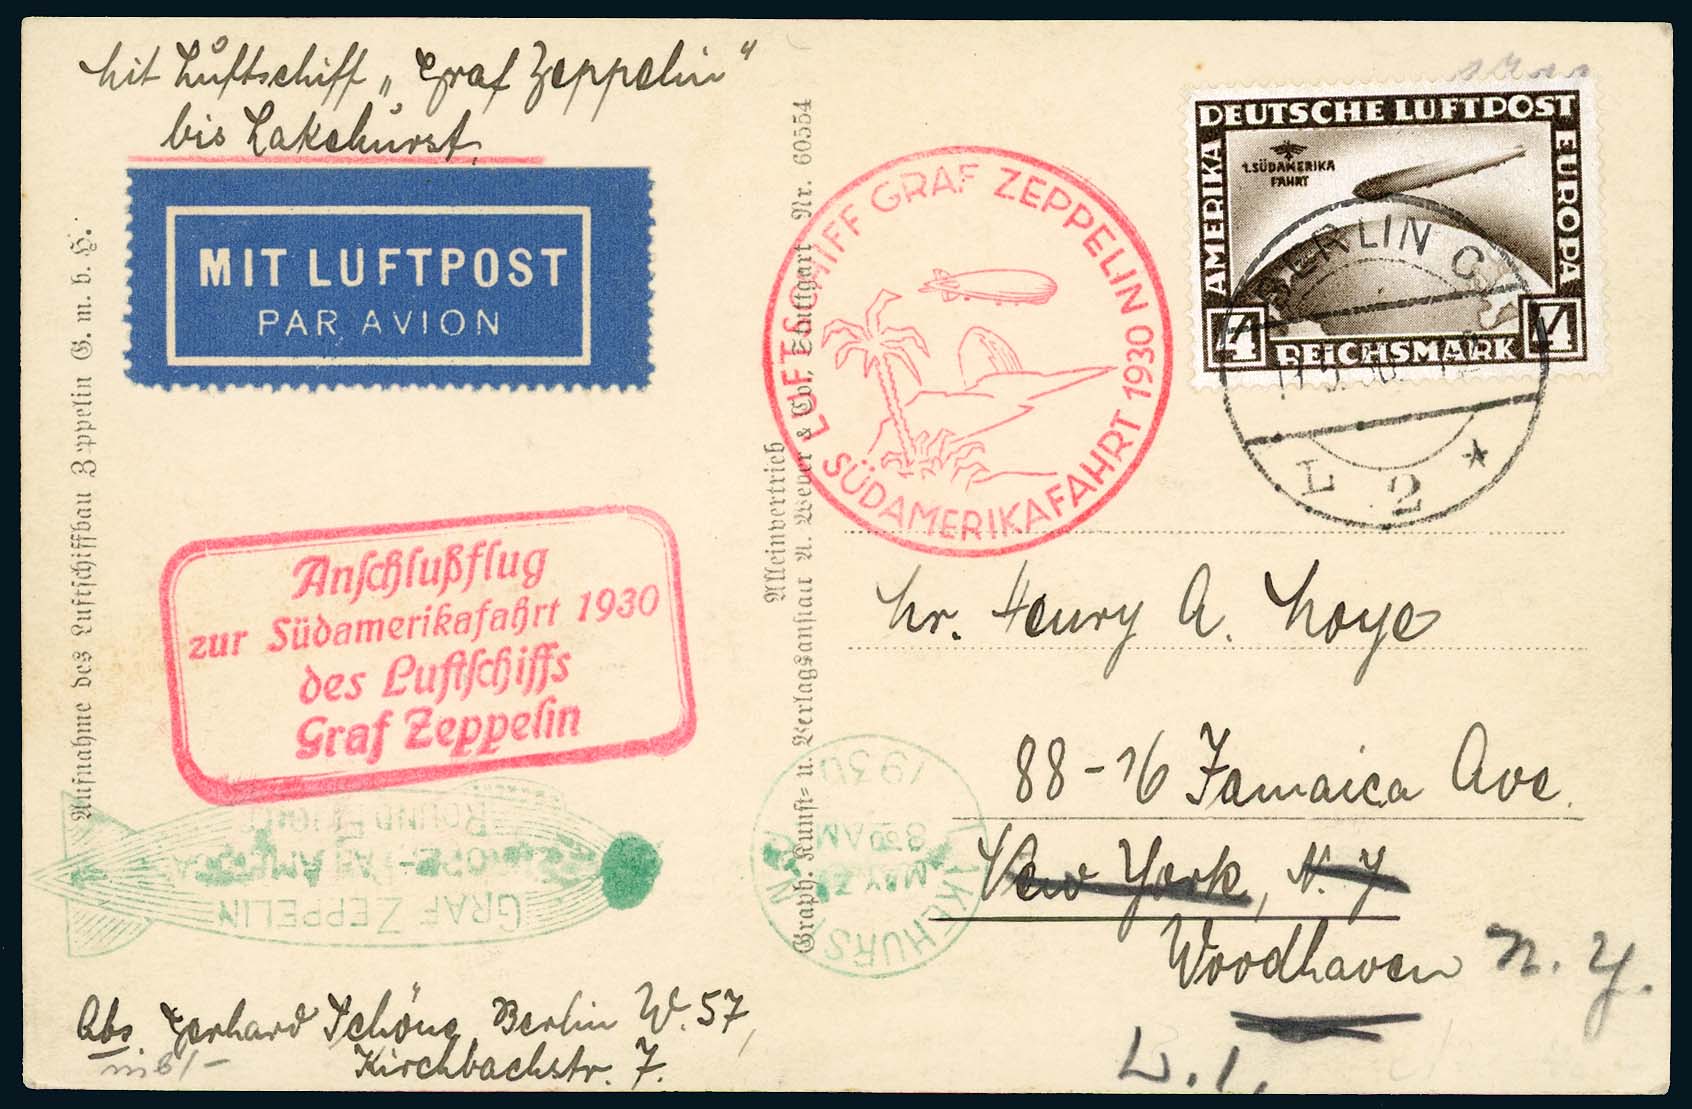 Mit Luftschiff „Graf Zeppelin“
bis Lakehurst.
MIT LUFTPOST
PAR AVION
Aufnahme des Luftschiffbau Zeppelin G. m. b. H.
Anschlußflug
zur Südamerikafahrt 1930
des Luftschiffs
Graf Zeppelin
GRAF ZEPPELIN
EUROPE-PAN AMERICA
ROUND FLIGHT
Abs. Gerhard Schöne, Berlin W. 57,
Kirchbachstr. 7.
Alleinvertrieb
Graph. Kunst- u. Verlagsanstalt A. Weber & Co., Stuttgart Nr. 60554
LUFTSCHIFF GRAF ZEPPELIN 1930
SÜDAMERIKAFAHRT
LAKEHURST
MAY 31
8 00 AM
1930
N.J.
DEUTSCHE LUFTPOST
AMERIKA
EUROPA
1. SÜDAMERIKA
FAHRT
4 REICHSMARK 4
BERLIN C
L 2 *
Mr. Henry A. Moye
88-76 Jamaica Ave.
New York, N.Y
Woodhaven N. Y.
L. I.